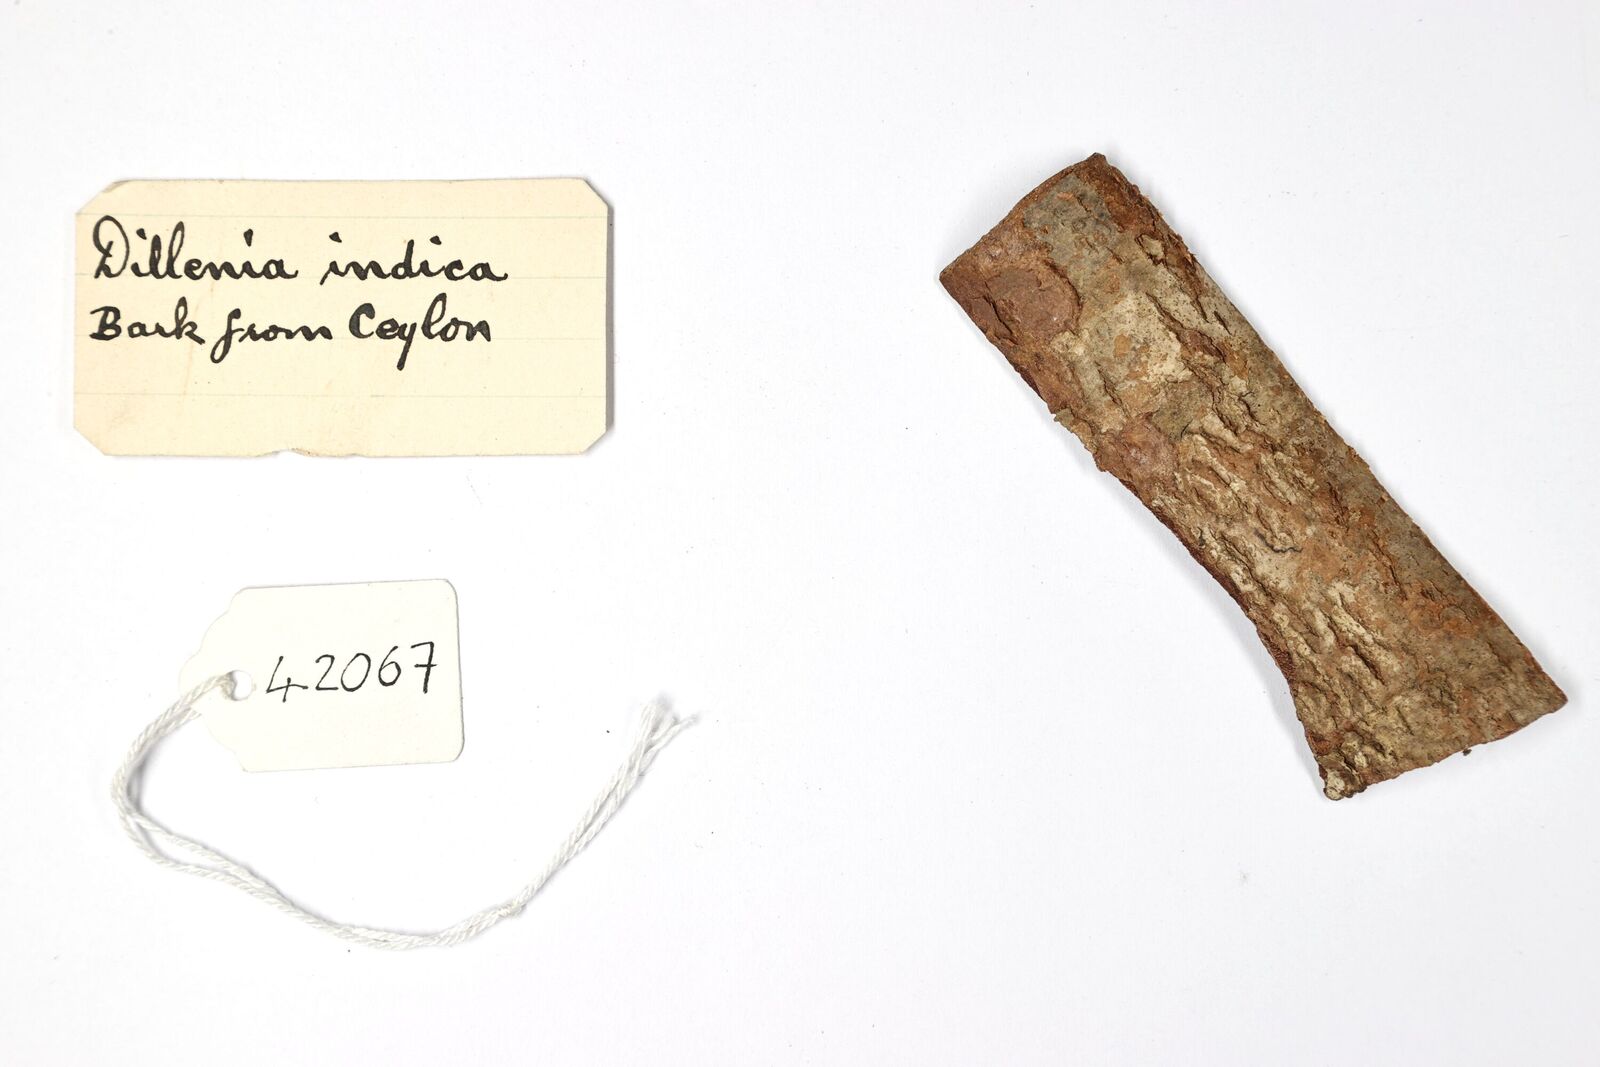 Dillenia indica
Bark from Ceylon
42067